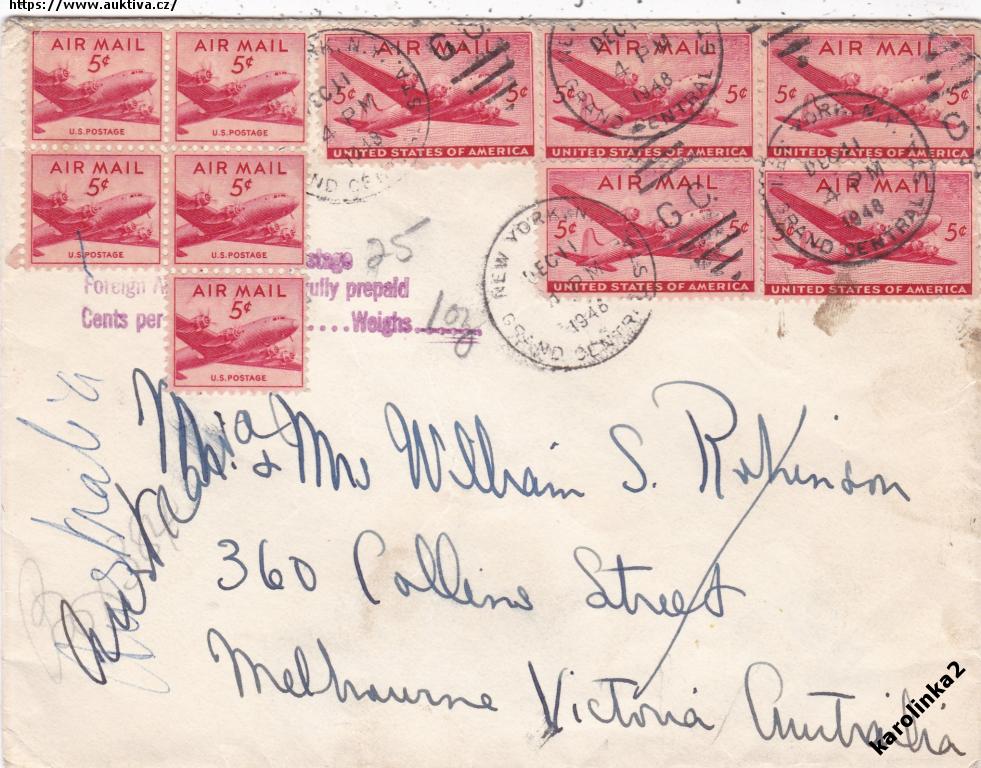 https://www.auktiva.cz/
AIR MAIL
5¢
U.S. POSTAGE
AIR MAIL
5¢
U.S. POSTAGE
AIR MAIL
5¢
AIR MAIL
5¢
AIR MAIL
5¢
U.S. POSTAGE
AIR MAIL
5¢ 5¢
UNITED STATES OF AMERICA
AIR MAIL
5¢ 5¢
UNITED STATES OF AMERICA
AIR MAIL
5¢ 5¢
UNITED STATES OF AMERICA
AIR MAIL
5¢ 5¢
UNITED STATES OF AMERICA
AIR MAIL
5¢ 5¢
UNITED STATES OF AMERICA
DEC 11
4 PM
1948
GRAND CENTRAL
G.C.
NEW YORK, N.Y.
DEC 11
4 PM
1948
GRAND CENTRAL STA.
G.C.
25
Foreign fully prepaid
Cents per ..... Weighs 1 oz
Australia
Australia
Mr. & Mrs William S. Robinson
360 Collins Street
Melbourne Victoria Australia
karolinka2